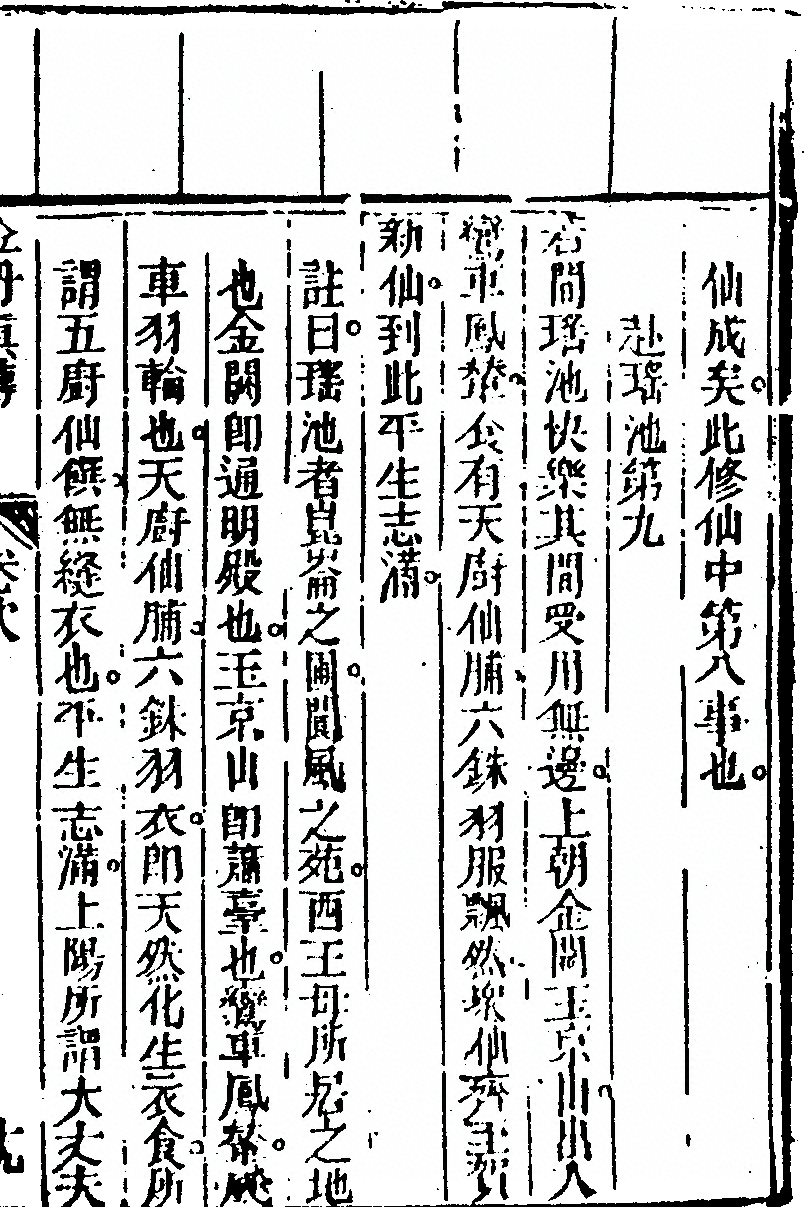 仙成矣此修仙中第八事也
赴瑤池第九
若問瑤池快樂其間受用無邊上朝金闕玉京山出入
鸞車鳳輦食有天廚仙脯六銖羽服飄然眾仙齊至賀
新仙到此平生志滿
註曰瑤池者崑崙之圃閬風之苑西王母所居之地
也金闕即通明殿也玉京山即蕭臺也鸞車鳳輦飈
車羽輪也天廚仙脯六銖羽衣即天然化生衣食所
謂五廚仙饌無縫衣也平生志滿上陽所謂大丈夫
金丹真傳